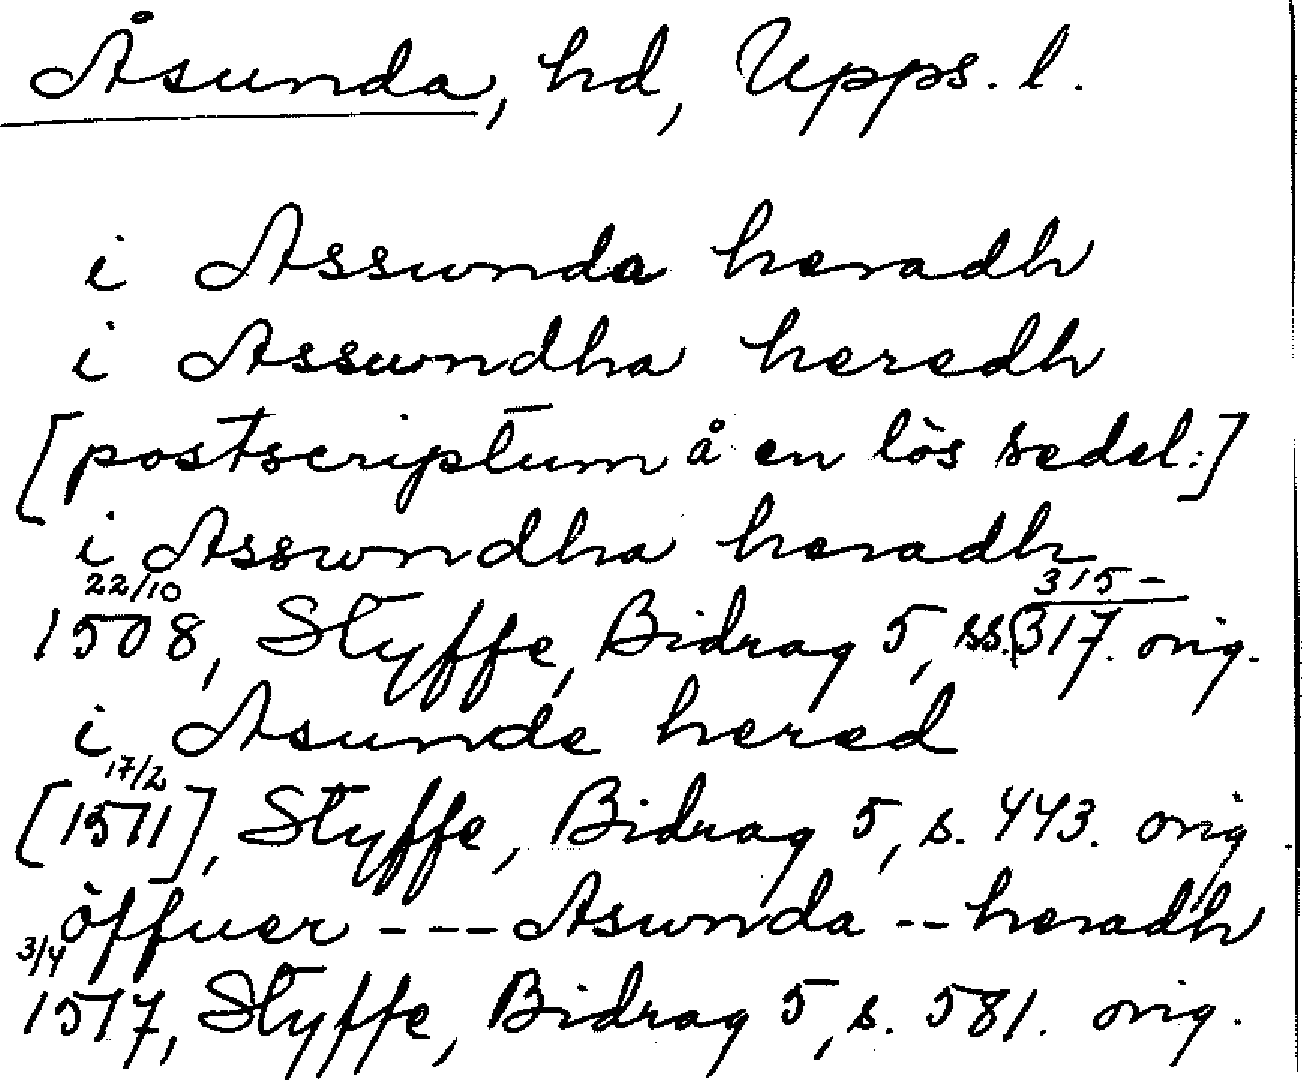 Åsunda, hd, Upps. l.
i Asswnda heradh
i Asswndha heredh
[postscriptum å en lös sedel:]
i Asswndha heradh
22/10 315-
1508, Styffe, Bidrag 5, ss. 317. orig.
i Asunde hered
17/2
[1511], Styffe, Bidrag 5, s. 443. orig
öffuer --- Aswnda -- heradh
3/4
1517, Styffe, Bidrag 5, s. 581. orig.